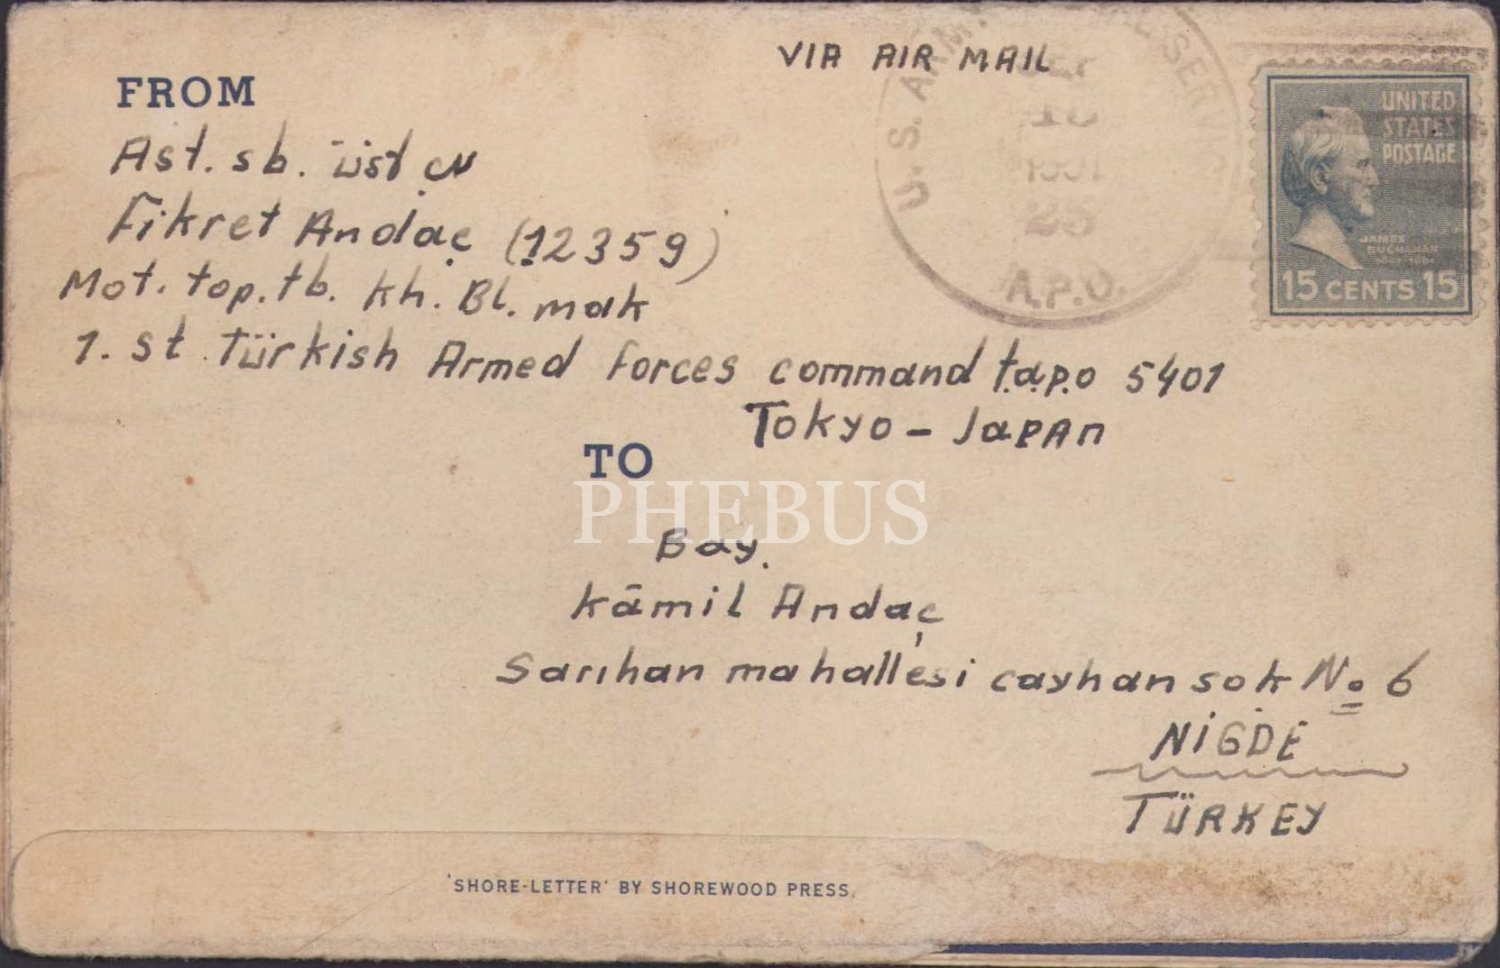 VIA AIR MAIL
U.S. ARMY POSTAL SERVICE
SEP
18
1951
25
A.P.O.
UNITED
STATES
POSTAGE
JAMES
BUCHANAN
15 CENTS 15
FROM
Ast. sb. üst çv
Fikret Andaç (12359)
Mot. top. tb. kh. Bl. mak
1. st Türkish Armed forces command t.a.p.o 5401
Tokyo - Japan
TO
PHEBUS
Bay.
kâmil Andaç
Sarıhan mahallesi cayhan sok No 6
NİGDE
TÜRKEY
'SHORE-LETTER' BY SHOREWOOD PRESS.